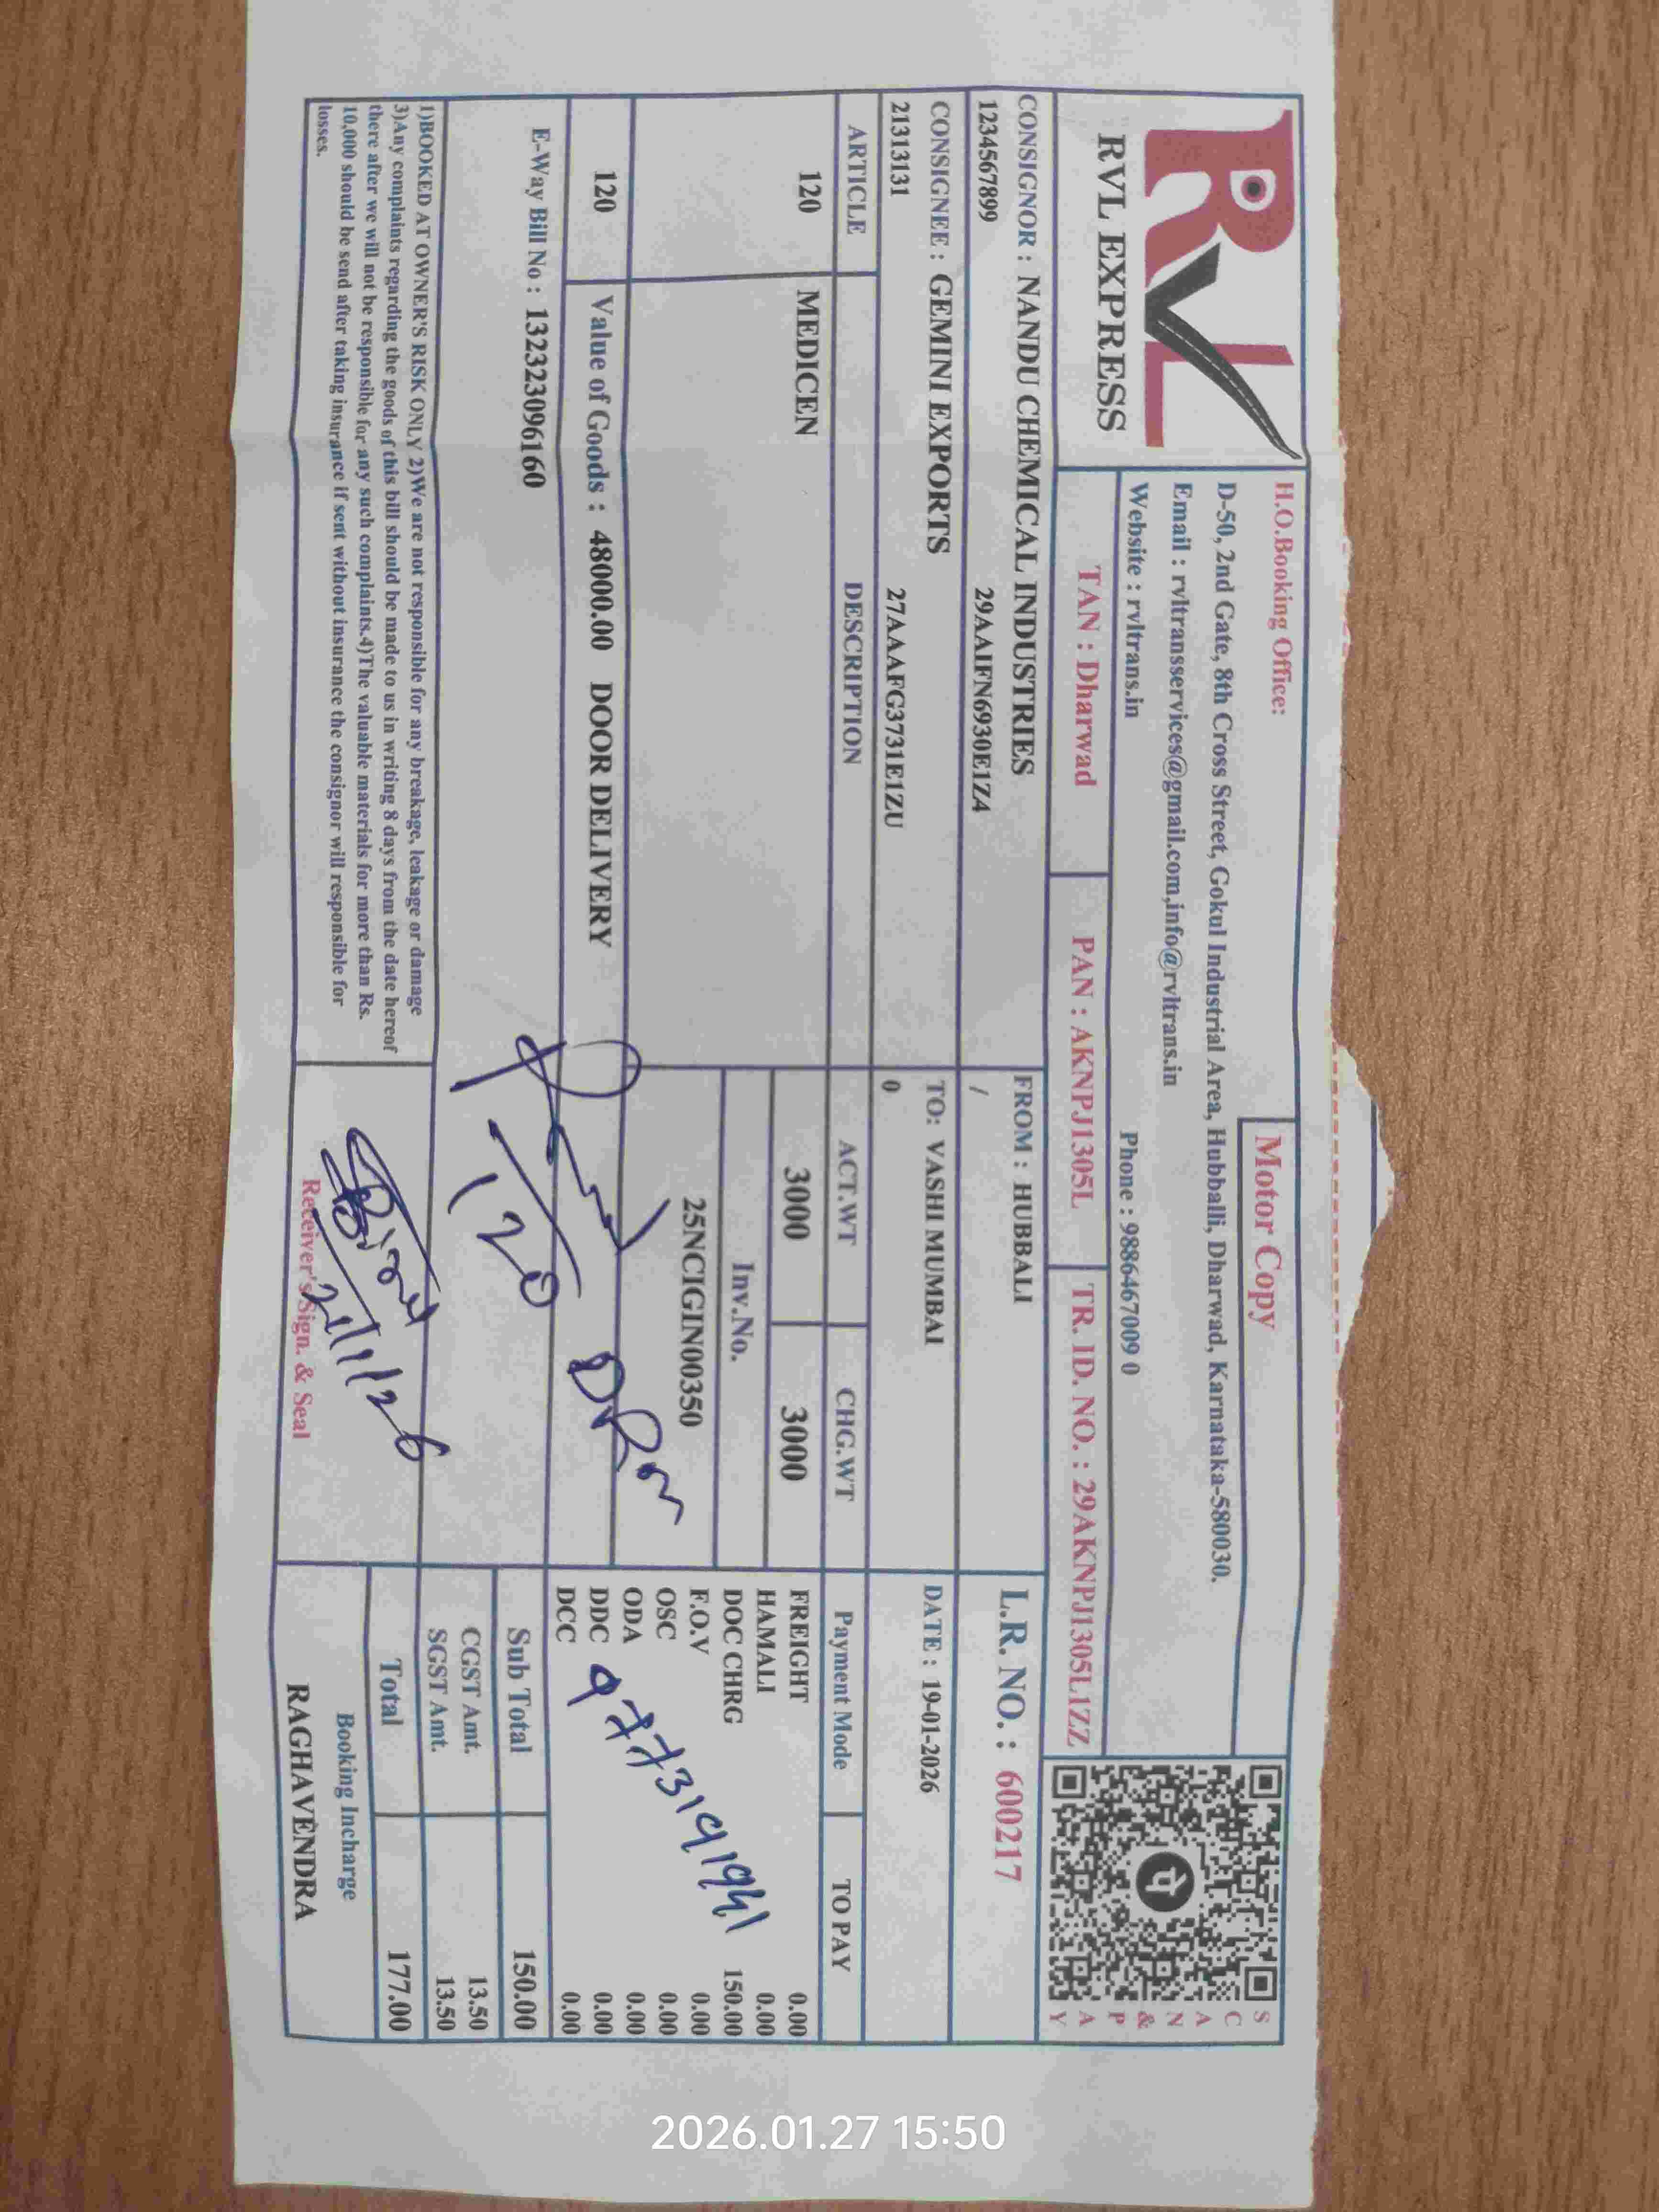 RVL
RVL EXPRESS
H.O.Booking Office:
Motor Copy
D-50, 2nd Gate, 8th Cross Street, Gokul Industrial Area, Hubballi, Dharwad, Karnataka-580030.
Email : rvltransservices@gmail.com,info@rvltrans.in
Website : rvltrans.in
Phone : 9886467009 0
SCAN & PAY
TAN : Dharwad
PAN : AKNPJ1305L
TR. ID. NO. : 29AKNPJ1305L1ZZ
CONSIGNOR : NANDU CHEMICAL INDUSTRIES
1234567899 29AAIFN6930E1Z4
FROM : HUBBALI
/
L.R. NO. : 600217
CONSIGNEE : GEMINI EXPORTS
21313131 27AAAFG3731E1ZU
TO: VASHI MUMBAI
0
DATE : 19-01-2026
ARTICLE DESCRIPTION ACT.WT CHG.WT Payment Mode TO PAY
120 MEDICEN 3000 3000
Inv.No.
25NCIGIN00350
FREIGHT 0.00
HAMALI 0.00
DOC CHRG 150.00
F.O.V 0.00
OSC 0.00
ODA 0.00
DDC 0.00
DCC 0.00
9773191941
120 Value of Goods : 48000.00 DOOR DELIVERY
E-Way Bill No : 132323096160
120
Sub Total 150.00
CGST Amt. 13.50
SGST Amt. 13.50
Total 177.00
1)BOOKED AT OWNER'S RISK ONLY 2)We are not responsible for any breakage, leakage or damage
3)Any complaints regarding the goods of this bill should be made to us in writing 8 days from the date hereof
there after we will not be responsible for any such complaints.4)The valuable materials for more than Rs.
10,000 should be send after taking insurance if sent without insurance the consignor will responsible for
losses.
21/1/26
Receiver's Sign. & Seal
Booking Incharge
RAGHAVENDRA
2026.01.27 15:50